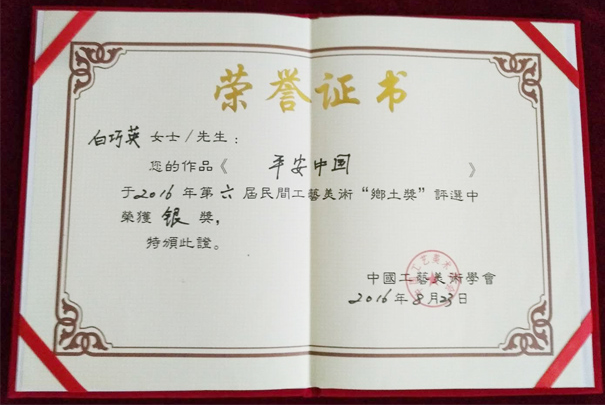 荣誉证书
白巧英 女士/先生:
您的作品《 平安中国 》
于2016年第六届民間工藝美術“鄉土獎”評選中
榮獲 銀 獎,
特頒此證。
中國工藝美術學會
2016年8月23日